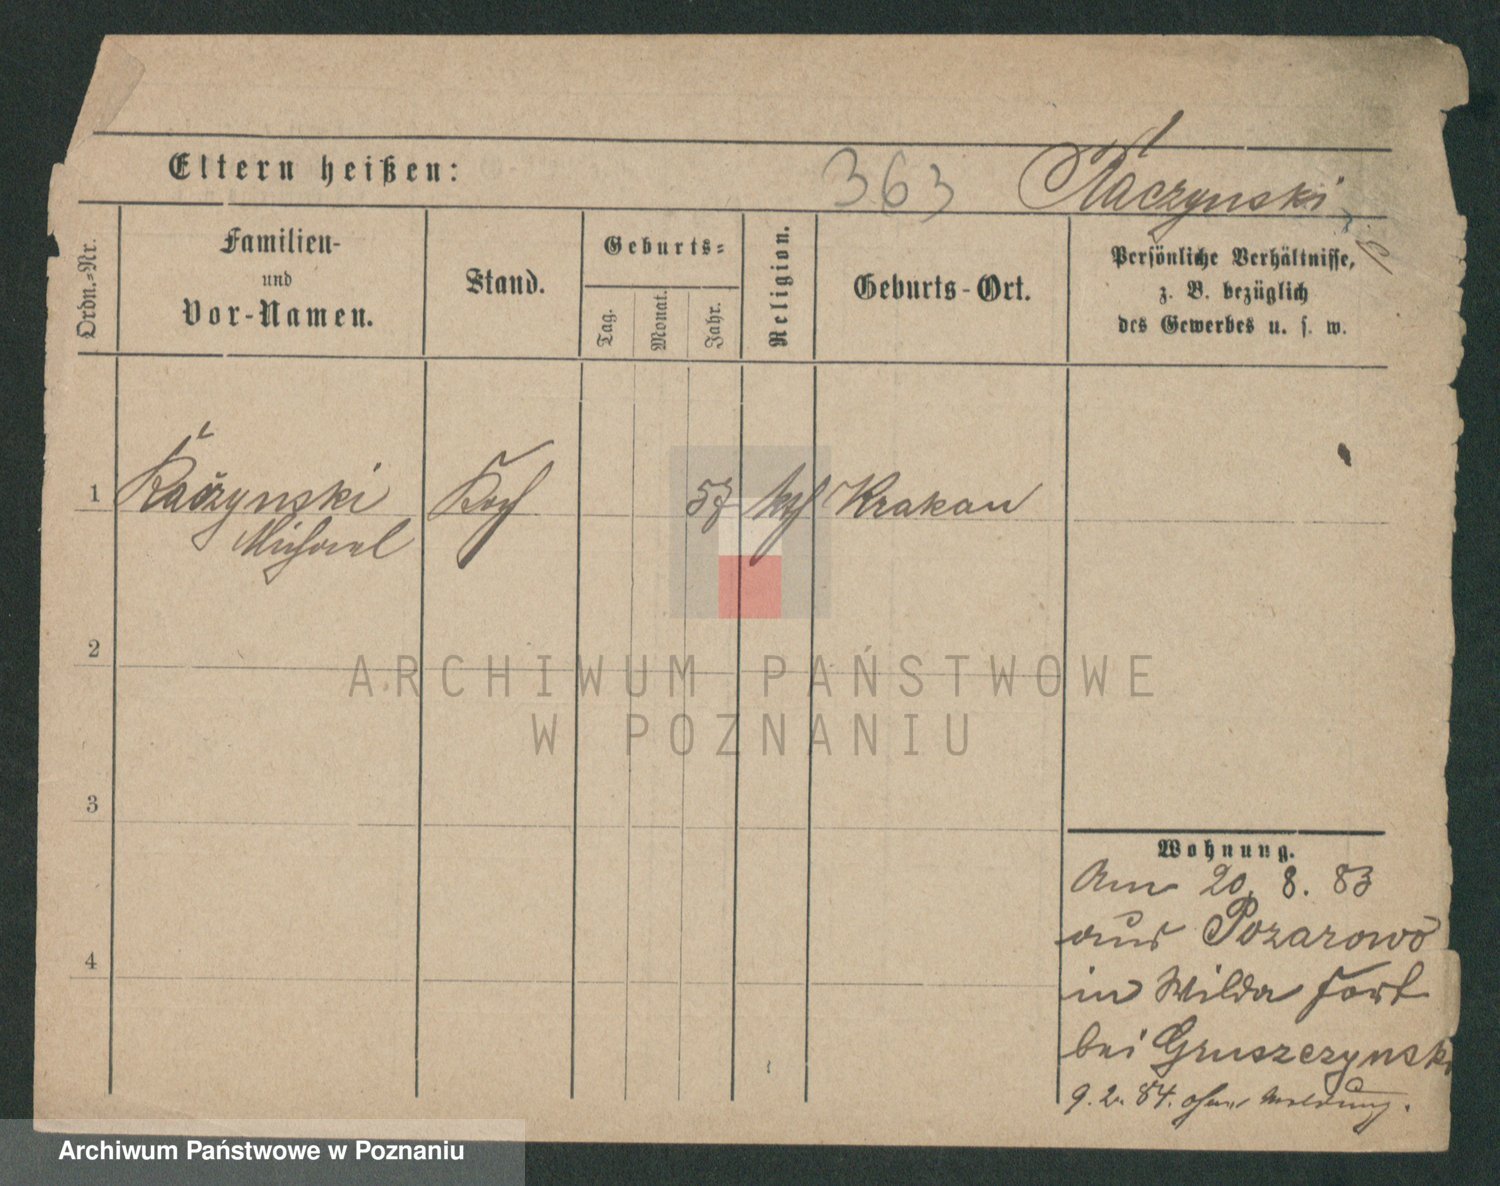 Eltern heißen:
363
Raczynski
Ordn.-Nr.
Familien-
und
Vor-Namen.
Stand.
Geburts-
Tag.
Monat.
Jahr.
Religion.
Geburts-Ort.
Persönliche Verhältnisse,
z. B. bezüglich
des Gewerbes u. s. w.
1 Raczynski Koch 57 kth Krakau
Michael
2
3
4
Wohnung.
Am 20. 8. 83
aus Pozarowo
in Wilda Fort
bei Gruszczynski
9. 2. 84. ohne Meldung.
ARCHIWUM PAŃSTWOWE
W POZNANIU
Archiwum Państwowe w Poznaniu